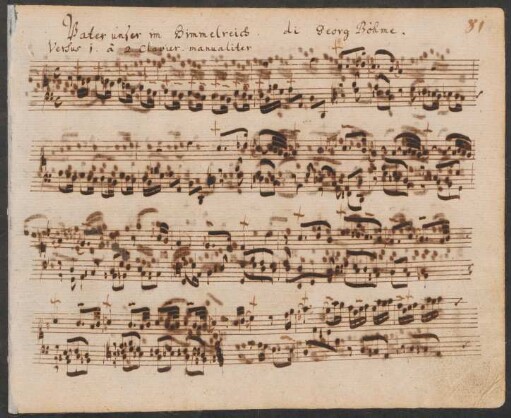 Vater unser im Himmelreich. di Georg Böhme. 81
Versus 1. â 2 Clavier. manualiter